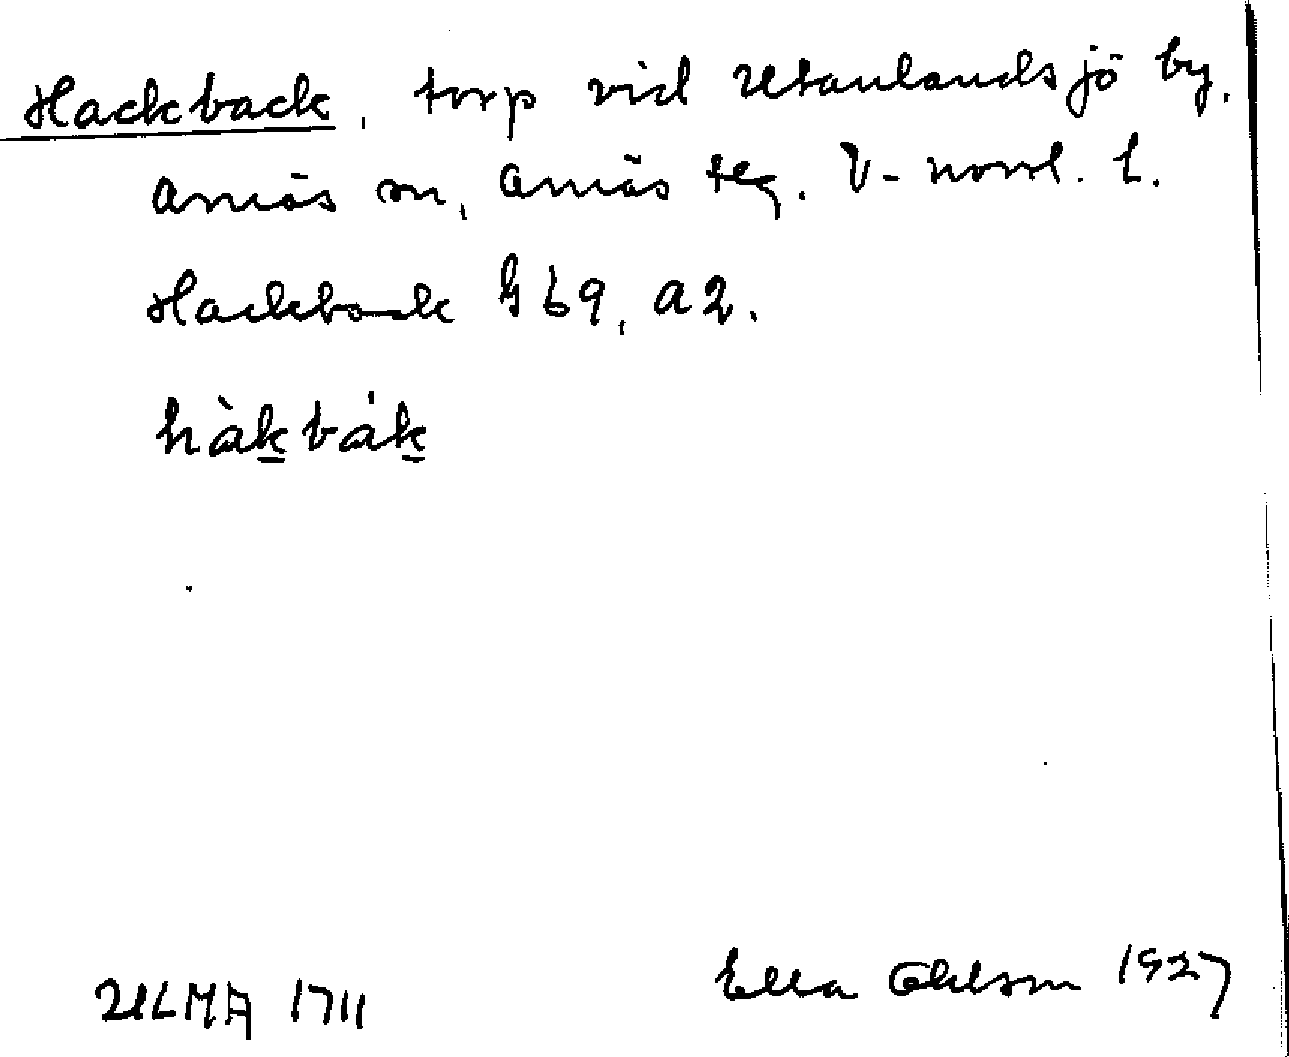 Hackback, torp vid Utanlandsjö by.
Arnäs sn, Arnäs tlg. V-norrl. L.
Hackback G 69, a 2.
hàk̲bák̲
ULMA 1711
Ella Ohlson 1927